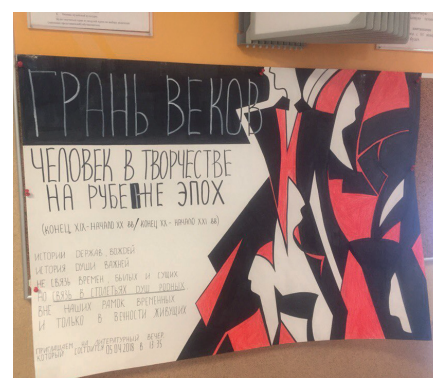 ГРАНЬ ВЕКОВ
ЧЕЛОВЕК В ТВОРЧЕСТВЕ
НА РУБЕЖЕ ЭПОХ
(КОНЕЦ XIX-НАЧАЛО XX ВВ/КОНЕЦ XX - НАЧАЛО XXI ВВ)
ИСТОРИИ ДЕРЖАВ, ВОЖДЕЙ
ИСТОРИЯ ДУШИ ВАЖНЕЙ
НЕ СВЯЗЬ ВРЕМЕН БЫЛЫХ И СУЩИХ
НО СВЯЗЬ В СТОЛЕТЬЯХ ДУШ РОДНЫХ
ВНЕ НАШИХ РАМОК ВРЕМЕННЫХ
И ТОЛЬКО В ВЕЧНОСТИ ЖИВУЩИХ
ПРИГЛАШАЕМ НА ЛИТЕРАТУРНЫЙ ВЕЧЕР
КОТОРЫЙ СОСТОИТСЯ 05.04.2018 В